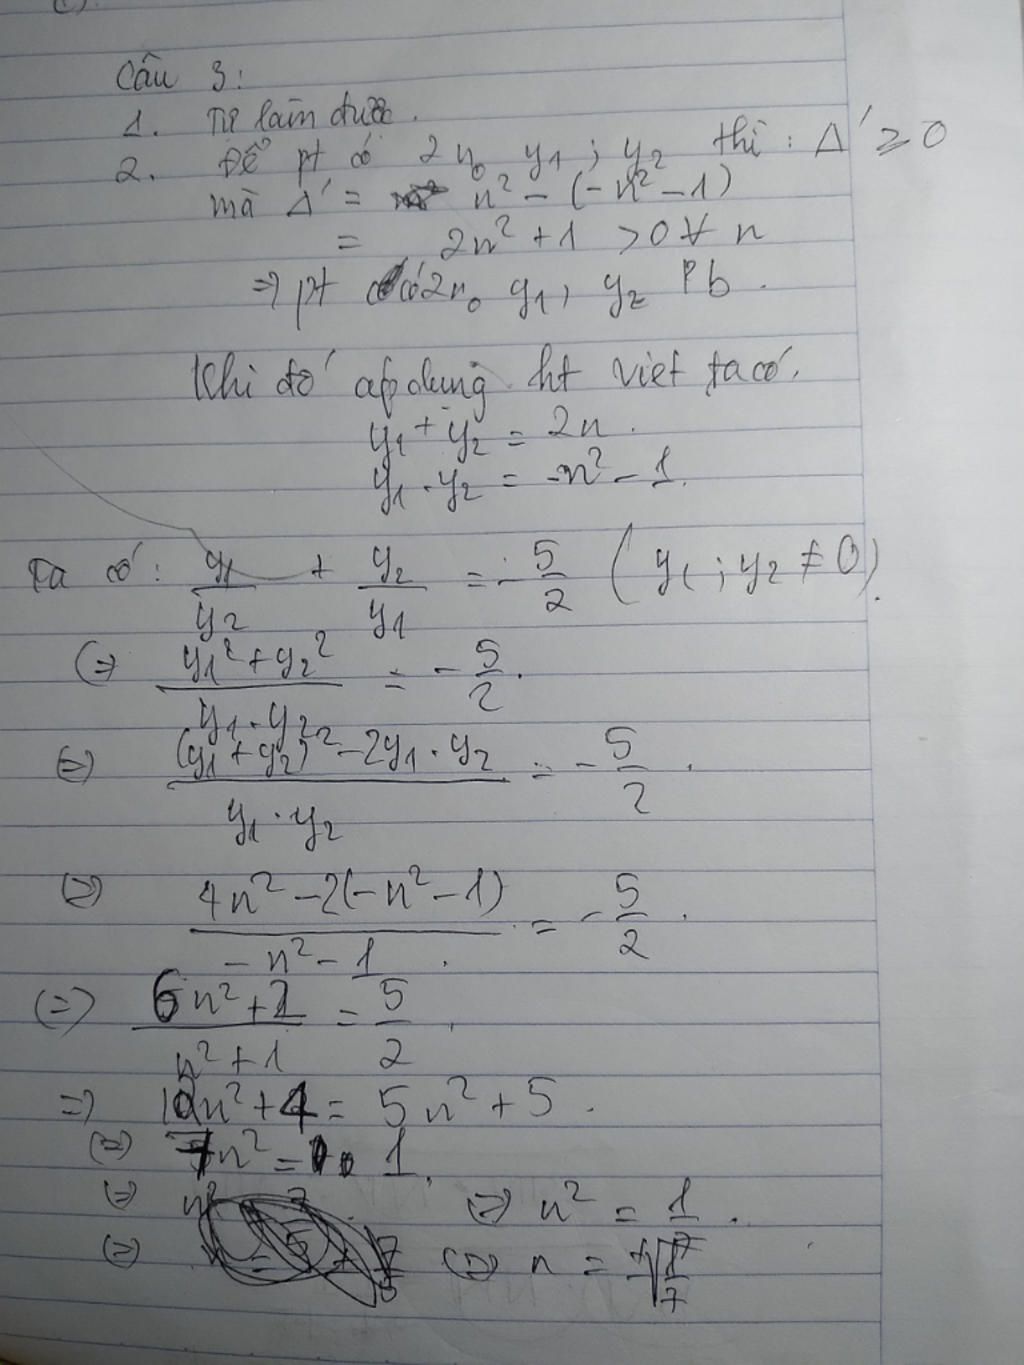 Câu 3:
1. Tự làm được.
2. Để pt có 2 n₀ y₁ ; y₂ thì : Δ' ≥ 0
mà Δ' = n² - (-n² - 1)
= 2n² + 1 > 0 ∀ n
=> pt có 2 n₀ y₁, y₂ Pb.
Khi đó áp dụng ht viet ta có.
y₁ + y₂ = 2n.
y₁ . y₂ = -n² - 1.
Ta có : y₁/y₂ + y₂/y₁ = - 5/2 ( y₁ ; y₂ ≠ 0).
(=) (y₁² + y₂²)/(y₁ . y₂) = - 5/2.
(=) ((y₁ + y₂)² - 2y₁ . y₂)/(y₁ . y₂) = - 5/2.
(=) (4n² - 2(-n² - 1))/(-n² - 1) = - 5/2.
(=) (6n² + 2)/(n² + 1) = 5/2.
=> 12n² + 4 = 5n² + 5.
(=) 7n² = 1.
(=) n² = 1/7.
(=) n =